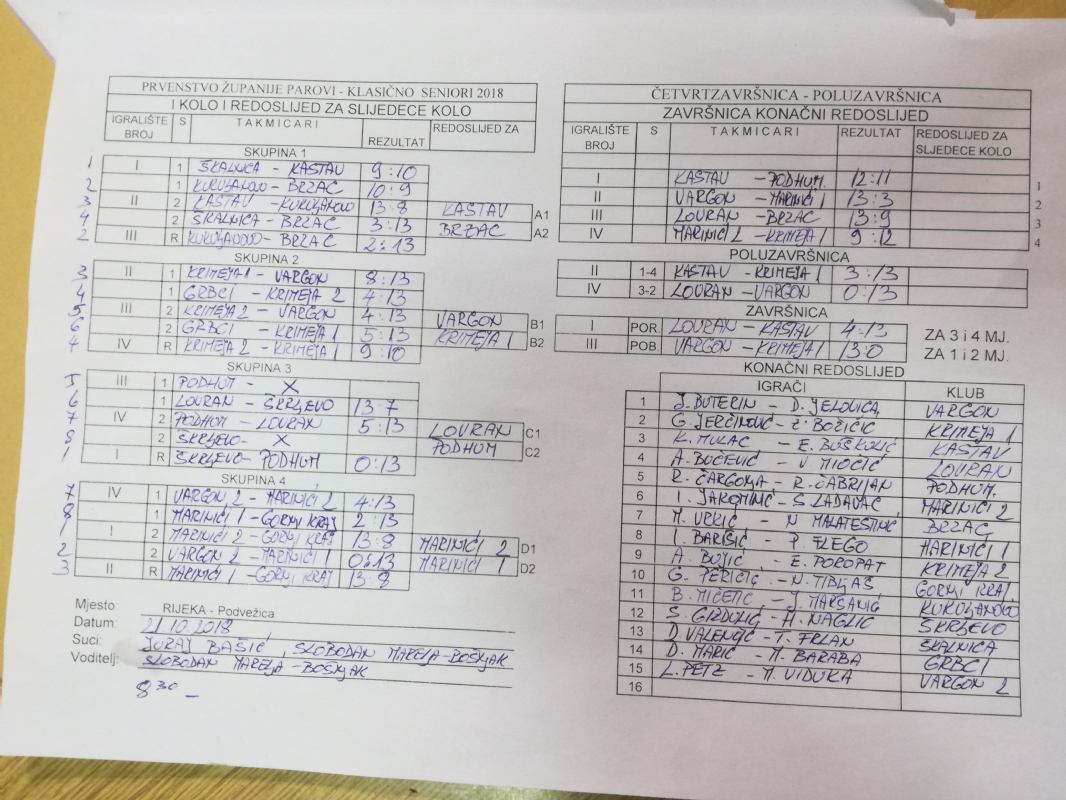 PRVENSTVO ŽUPANIJE PAROVI - KLASIČNO SENIORI 2018
I KOLO I REDOSLIJED ZA SLIJEDEĆE KOLO
IGRALIŠTE BROJ S TAKMICARI REZULTAT REDOSLIJED ZA
SKUPINA 1
1 I 1 ŠKALNICA - KASTAV 9:10
2 1 KUKULJANOVO - BRZAC 10:9
3 II 2 KASTAV - KUKULJANOVO 13:8 KASTAV A1
4 2 ŠKALNICA - BRZAC 3:13 BRZAC A2
2 III R KUKULJANOVO - BRZAC 2:13
SKUPINA 2
3 II 1 KRIMEJA 1 - VARGON 8:13
4 1 GRBCI - KRIMEJA 2 4:13
5 III 2 KRIMEJA 2 - VARGON 4:13 VARGON B1
6 2 GRBCI - KRIMEJA 1 5:13 KRIMEJA 1 B2
4 IV R KRIMEJA 2 - KRIMEJA 1 9:10
SKUPINA 3
5 III 1 PODHUM - X
6 1 LOVRAN - ŠKRLJEVO 13:7
7 IV 2 PODHUM - LOVRAN 5:13 LOVRAN C1
8 2 ŠKRLJEVO - X PODHUM C2
1 I R ŠKRLJEVO - PODHUM 0:13
SKUPINA 4
7 IV 1 VARGON 2 - MARINIĆI 2 4:13
8 1 MARINIĆI 1 - GORNJI KRAJ 2:13
1 I 2 MARINIĆI 2 - GORNJI KRAJ 13:8 MARINIĆI 2 D1
2 2 VARGON 2 - MARINIĆI 1 0:13 MARINIĆI 1 D2
3 II R MARINIĆI 1 - GORNJI KRAJ 13:8
Mjesto: RIJEKA - Podvežica
Datum: 21.10.2018
Suci: JURAJ BAŠIĆ, SLOBODAN MARELJA-BOŠNJAK
Voditelj: SLOBODAN MARELJA-BOŠNJAK
8 30 -
ČETVRTZAVRŠNICA - POLUZAVRŠNICA
ZAVRŠNICA KONAČNI REDOSLIJED
IGRALIŠTE BROJ S TAKMICARI REZULTAT REDOSLIJED ZA SLJEDEĆE KOLO
I KASTAV - PODHUM 12:11 1
II VARGON - MARINIĆI 1 13:3 2
III LOVRAN - BRZAC 13:9 3
IV MARINIĆI 2 - KRIMEJA 1 9:12 4
POLUZAVRŠNICA
II 1-4 KASTAV - KRIMEJA 1 3:13
IV 3-2 LOVRAN - VARGON 0:13
ZAVRŠNICA
I POR. LOVRAN - KASTAV 4:13 ZA 3 i 4 MJ.
III POB VARGON - KRIMEJA 1 13:0 ZA 1 i 2 MJ.
KONAČNI REDOSLIJED
IGRAČI KLUB
1 J. BUTERIN - D. JELOVICA VARGON
2 G. JERČINOVIĆ - Ž. BOŽIČIĆ KRIMEJA 1
3 K. MULAC - E. BUŠKULIĆ KASTAV
4 A. BOČEVIĆ - V MIOČIĆ LOVRAN
5 R. ČARGONJA - R. ČABRIJAN PODHUM.
6 I. JAROMINIĆ - S LADAVAC MARINIĆI 2
7 M. VRKIĆ - N MALATESTINIĆ BRZAC
8 I. BARIŠIĆ - P. FLEGO MARINIĆI 1
9 A. BUJIĆ - E. POROPAT KRIMEJA 2
10 G. PERIČIĆ - N. TIBLJAŠ GORNJI KRAJ
11 B. MIČETIĆ - J. MARŠANIĆ KUKULJANOVO
12 S. - A. NAGLIĆ ŠKRLJEVO
13 D. VALENČIĆ - T. FRLAN ŠKALNICA
14 D. MARIĆ - M. BARABA GRBCI
15 L. PETZ - M. VIDUKA VARGON 2
16